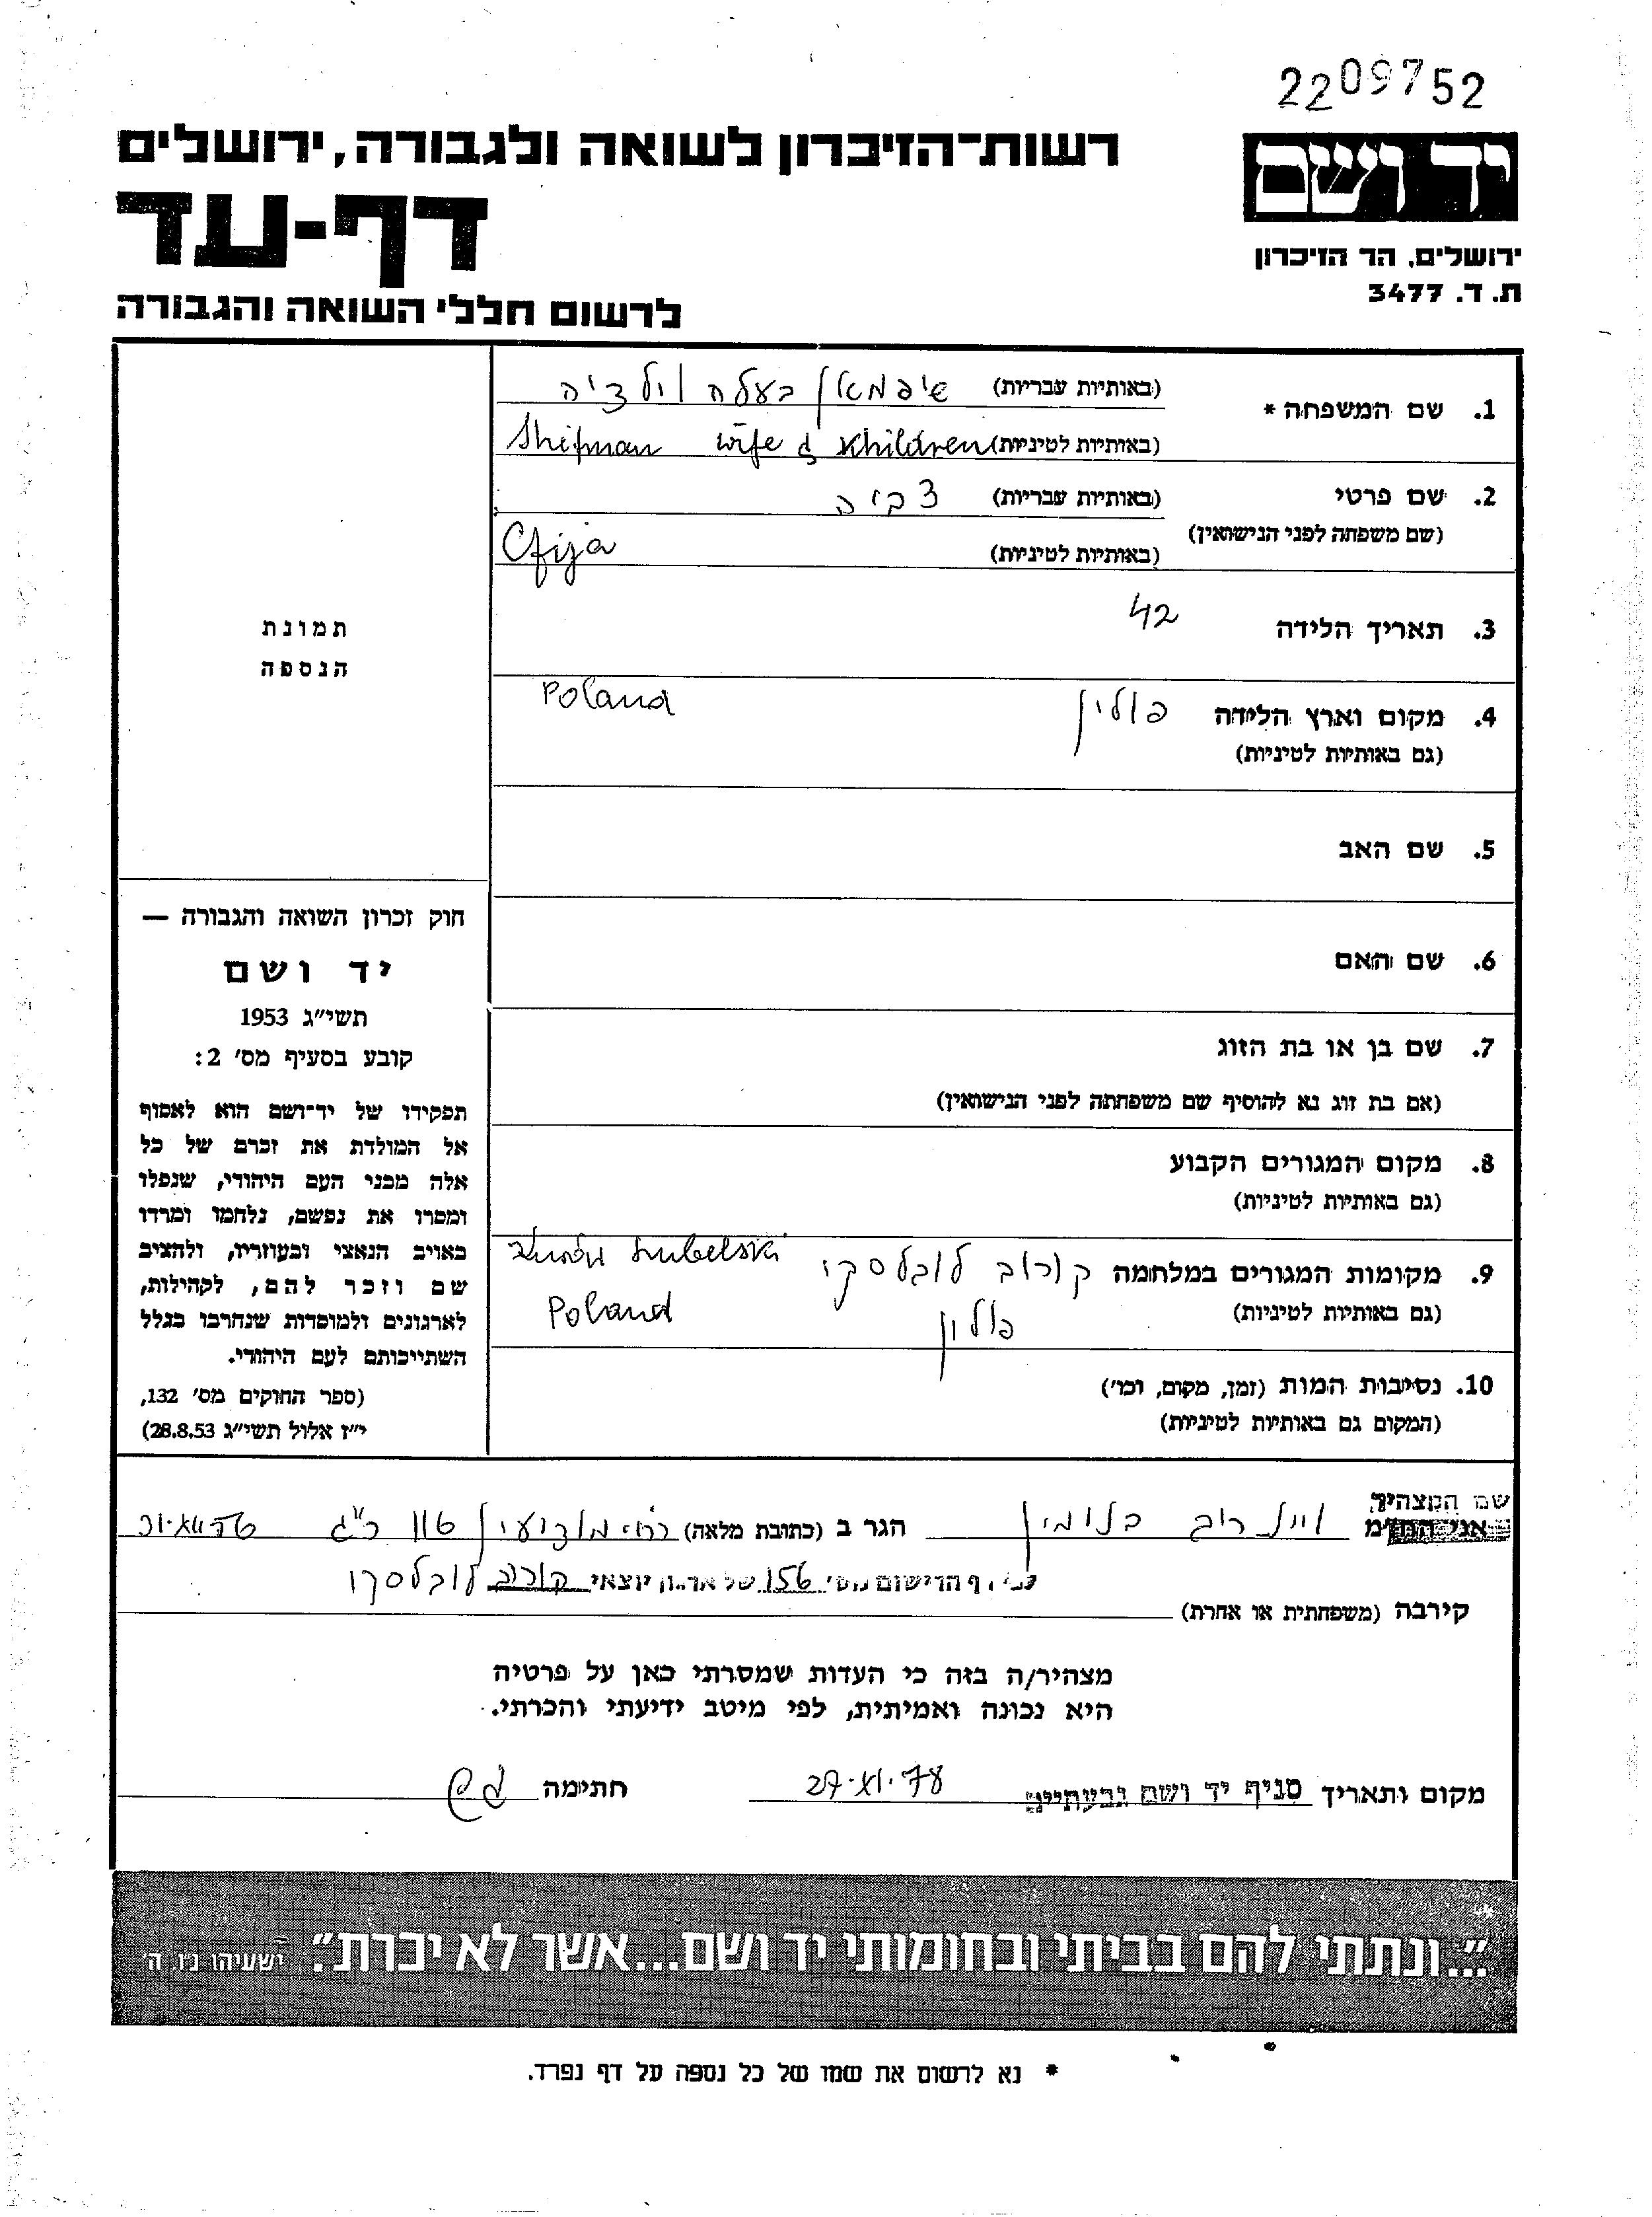 2209752
יד ושם
ירושלים, הר הזיכרון
ת. ד. 3477
רשות־הזיכרון לשואה ולגבורה, ירושלים
דף-עד
לרשום חללי השואה והגבורה
1. שם המשפחה * (באותיות עבריות) שיפמאן בעלה וילדיה
(באותיות לטיניות) Shifman wife & khildren
2. שם פרטי (באותיות עבריות) צביה
(שם משפחה לפני הנישואין) (באותיות לטיניות) Cfija
3. תאריך הלידה 42
4. מקום וארץ הלידה פולין Poland
(גם באותיות לטיניות)
5. שם האב
6. שם האם
7. שם בן או בת הזוג
(אם בת זוג נא להוסיף שם משפחתה לפני הנישואין)
8. מקום המגורים הקבוע
(גם באותיות לטיניות)
9. מקומות המגורים במלחמה קורוב לובלסקי Lubelski
(גם באותיות לטיניות) פולין Poland
10. נסיבות המות (זמן, מקום, וכו')
(המקום גם באותיות לטיניות)
תמונת
הנספה
חוק זכרון השואה והגבורה —
יד ושם
תשי״ג 1953
קובע בסעיף מס' 2:
תפקידו של יד־ושם הוא לאסוף
אל המולדת את זכרם של כל
אלה מבני העם היהודי, שנפלו
ומסרו את נפשם, נלחמו ומרדו
באויב הנאצי ובעוזריו, ולהציב
שם וזכר להם, לקהילות,
לארגונים ולמוסדות שנחרבו בגלל
השתייכותם לעם היהודי.
(ספר החוקים מס' 132,
י״ז אלול תשי״ג 28.8.53)
שם המצהיר
אני החו״מ בנומין הגר ב (כתובת מלאה)
דף הרישום מס' 156 של ארגון יוצאי קורוב לובלסקי
קירבה (משפחתית או אחרת)
מצהיר/ה בזה כי העדות שמסרתי כאן על פרטיה
היא נכונה ואמיתית, לפי מיטב ידיעתי והכרתי.
מקום ותאריך סניף יד ושם גבעתיים 27.XI.78 חתימה
״...ונתתי להם בביתי ובחומותי יד ושם...אשר לא יכרת.״ ישעיהו נ״ו, ה'
* נא לרשום את שמו של כל נספה על דף נפרד.